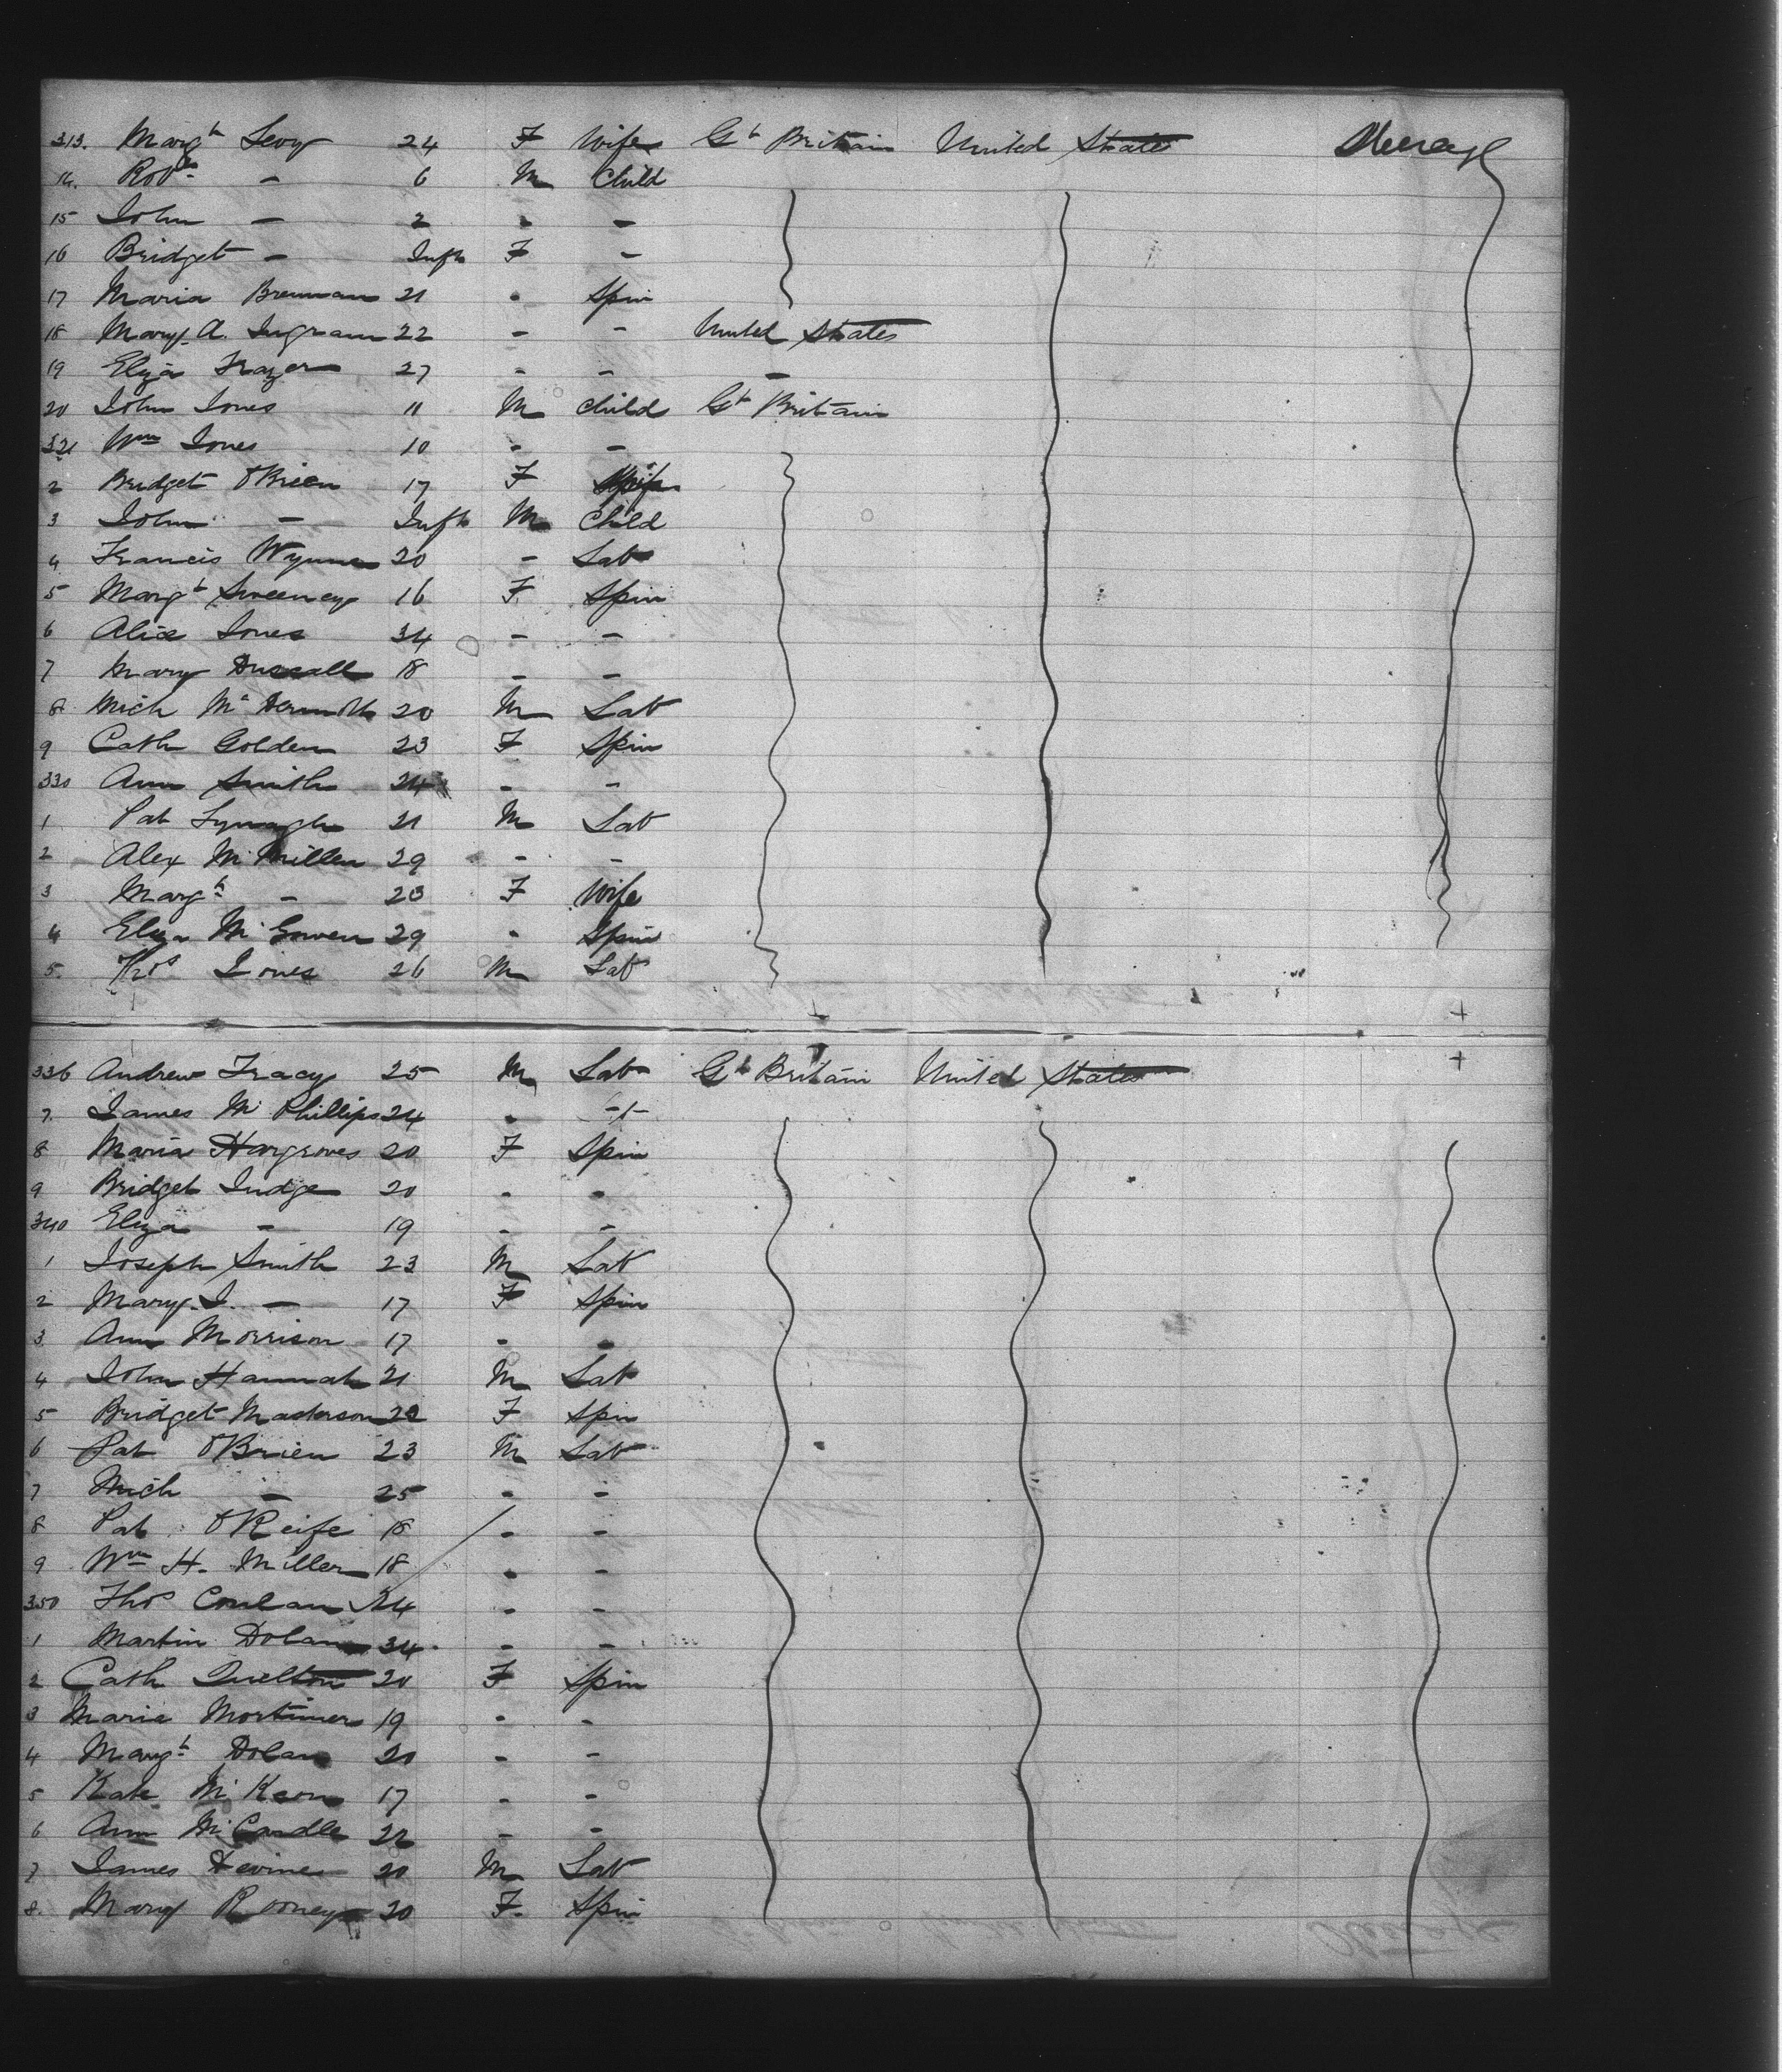 313. Margt Levy 24 F Wife Gt Britain United States Steerage
14. Robt - 6 M Child
15 John - 2 - -
16 Bridget - Inft F -
17 Maria Brennan 21 - Spin
18 Mary A. Ingram 22 - - United States
19 Eliza Frazer 27 - - -
20 John Jones 11 M Child Gt Britain
321 Wm Jones 10 - -
2 Bridget O'Brien 17 F
3 John - Inft M Child
4 Francis Wynne 20 - Lab
5 Margt Sweeney 16 F Spin
6 Alice Jones 34 - -
7 Mary 18 - -
8 Mich McDermott 20 M Lab
9 Cath Golden 23 F Spin
330 Ann Smith 24 - -
1 Pat 21 M Lab
2 Alex McMillen 29 - -
3 Margt - 23 F Wife
4 Eliza McGowen 29 - Spin
5. Thos Jones 26 M Lab
336 Andrew Tracy 25 M Lab Gt Britain United States
7. James McPhillips 24 - -
8 Maria Hargroves 20 F Spin
9 Bridget Judge 20 - -
340 Eliza - 19 - -
1 Joseph Smith 23 M Lab
2 Mary J. - 17 F Spin
3. Ann Morrison 17 - -
4 John Hannah 21 M Lab
5 Bridget Masterson F Spin
6 Pat O'Brien 23 M Lab
7 Mich - 25 - -
8 Pat O'Keife 18 - -
9 Wm H. Miller 18 - -
350 Thos Conlan 24 - -
1 Martin Dolan 34 - -
2 Cath 20 F Spin
3 Maria Mortimer 19 - -
4 Margt Dolan 20 - -
5 Kate McKeon 17 - -
6 Ann McCardle 22 - -
7 James Devine 20 M Lab
8. Mary Rooney 20 F. Spin